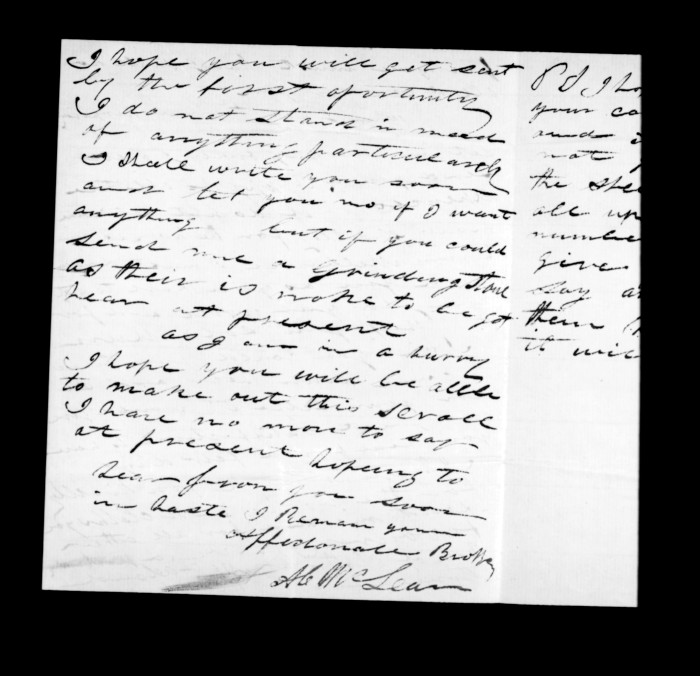 I hope you will get sent
by the first oportunity
I do not stand in need
of anything particularly
I Shall write you soon
and let you no if I want
anything but if you could
send me a Grinding Stone
as their is noke to be got
hear at present
as I am in a hurry
I hope you will be able
to make out this scroll
I have no more to say
at present hopeing to
hear from you soon
in haste I Reman your
Affectionate Brother
McLean
P S I ho
your co
and
not
the shee
all up
numbe
give
say a
them
it wil